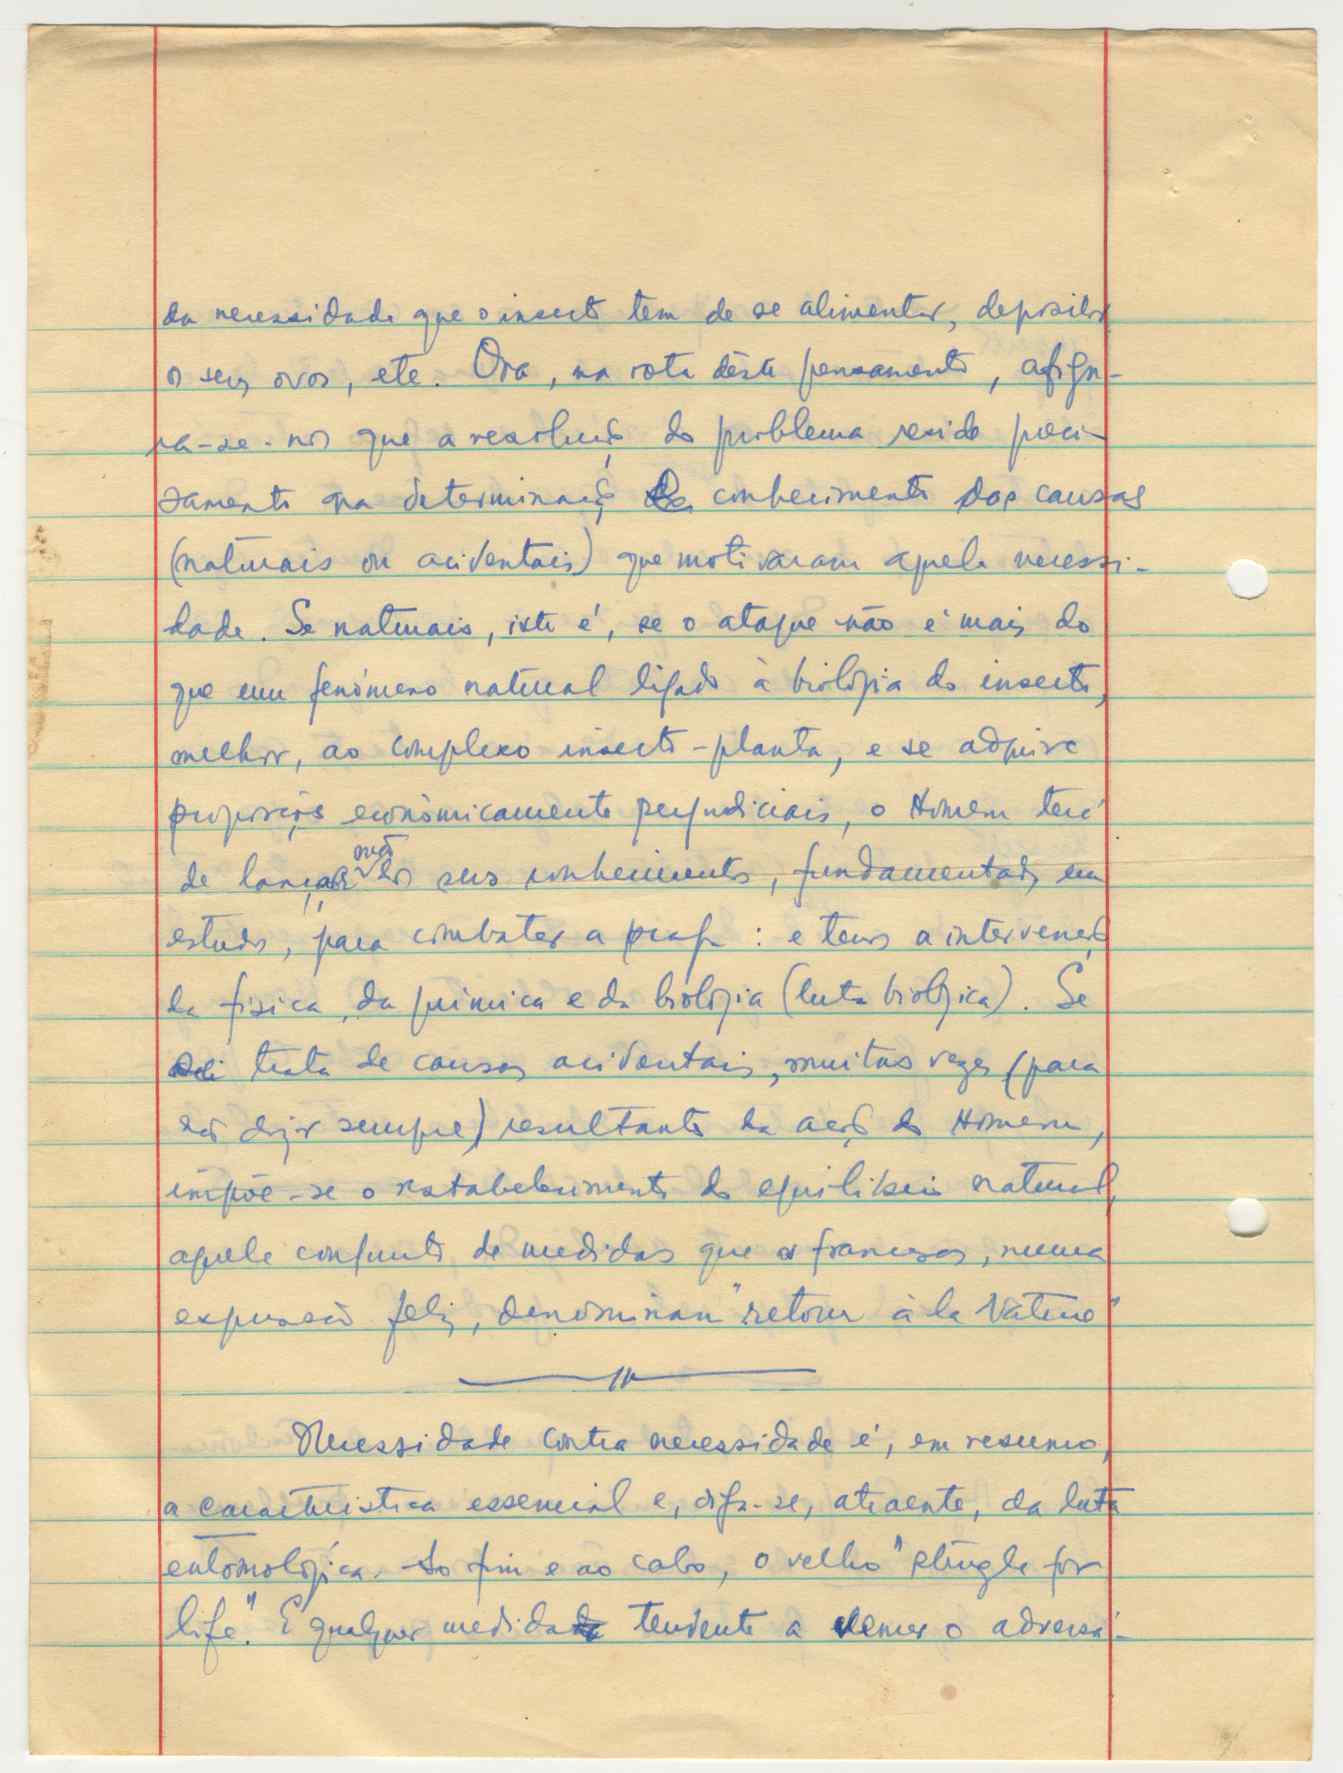 da necessidade que o insecto tem de se alimentar, depositar
os seus ovos, etc. Ora, na rota dêste pensamento, afigu-
ra-se-nos que a resolução do problema reside preci-
samente na determinação conhecimento das causas
(naturais ou acidentais) que motivaram aquela necessi-
dade. Se naturais, isto é, se o ataque não é mais do
que um fenómeno natural ligado à biologia do insecto,
melhor, ao complexo insecto-planta, e se adquire
proporções económicamente prejudiciais, o Homem terá
de lançar mão dos seus conhecimentos, fundamentados em
estudos, para combater a praga: e temos a intervenção
da física, da química e da biologia (luta biológica). Se
se trata de causas acidentais, muitas vezes (para
não dizer sempre) resultante da acção do Homem,
impõe-se o restabelecimento do equilíbrio natural,
aquele conjunto de medidas que os franceses, numa
expressão feliz, denominam "retour à la Nature"
Necessidade contra necessidade é, em resumo,
a característica essencial e, diga-se, atraente, da luta
entomológica. Ao fim e ao cabo, o velho "strugle for
life". E qualquer medida tendente a vencer o adversá-